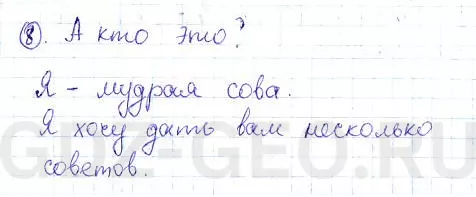 ⑧. А кто это?
Я - мудрая сова.
Я хочу дать вам несколько
советов.
GDZ-GEO.RU